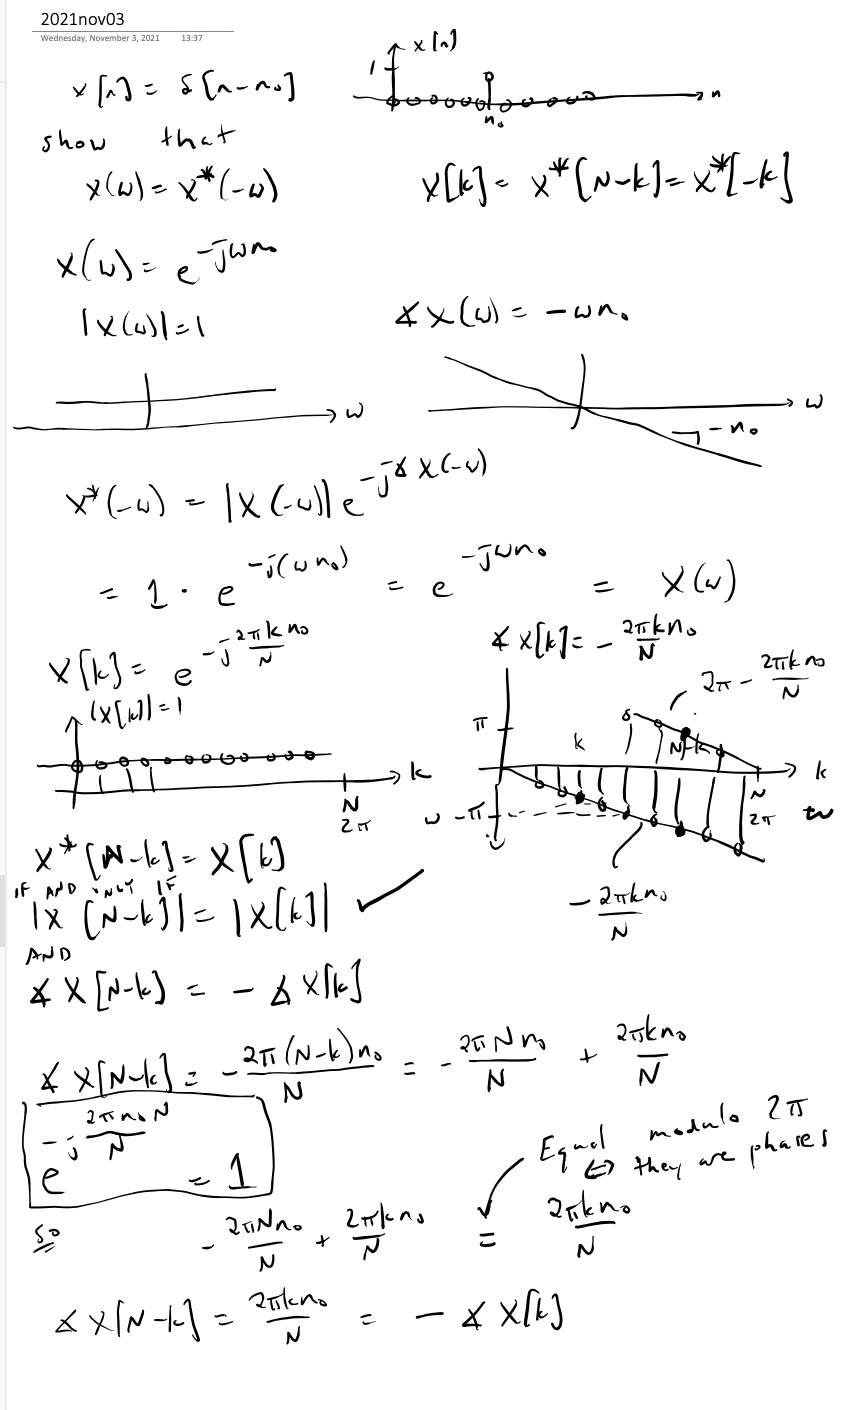 2021nov03
Wednesday, November 3, 2021 13:37
x[n] = δ[n-n₀]
1 x[n] n n₀
show that
X(ω) = X*(-ω) X[k] = X*[N-k] = X*[-k]
X(ω) = e^{-jωn₀}
|X(ω)| = 1 ∡X(ω) = -ωn₀
ω ω
-n₀
X*(-ω) = |X(-ω)| e^{-j∡X(-ω)}
= 1 · e^{-j(ωn₀)} = e^{-jωn₀} = X(ω)
X[k] = e^{-j 2πkn₀/N} ∡X[k] = - 2πkn₀/N
|X[k]| = 1 2π - 2πkn₀/N
π k N-k
k k
N 2π N 2π ω
ω -π
- 2πkn₀/N
X*[N-k] = X[k]
IF AND ONLY IF
|X[N-k]| = |X[k]| ✓
AND
∡X[N-k] = - ∡X[k]
∡X[N-k] = - 2π(N-k)n₀/N = - 2πNn₀/N + 2πkn₀/N
e^{-j 2πn₀N/N} = 1
Equal modulo 2π
⇔ they are phases
so - 2πNn₀/N + 2πkn₀/N = 2πkn₀/N
∡X[N-k] = 2πkn₀/N = - ∡X[k]